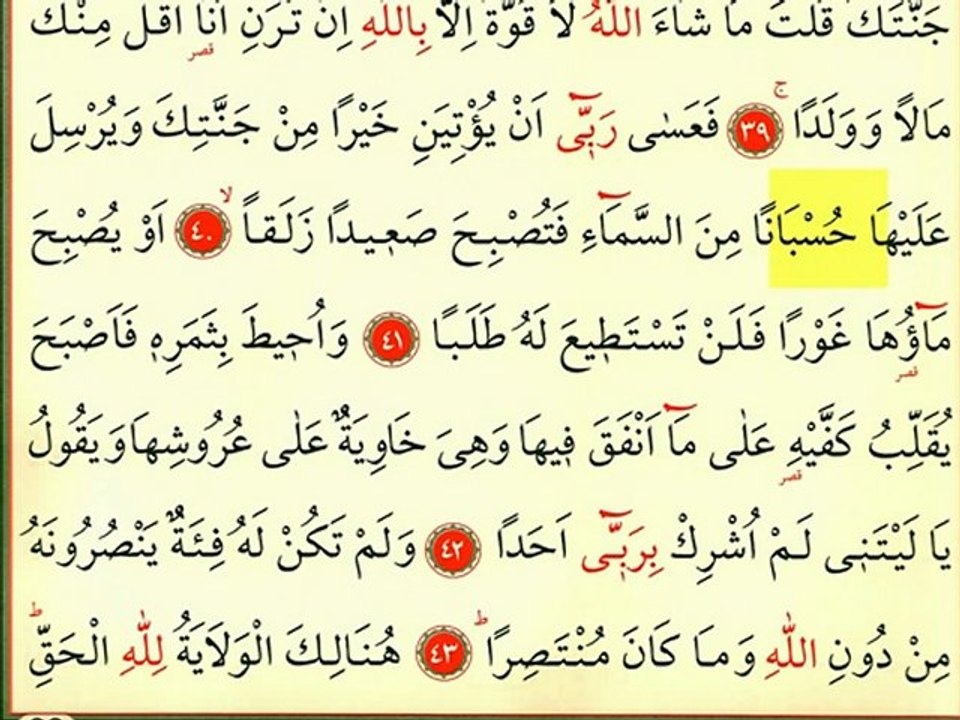 جَنَّتَكَ قُلْتَ مَا شَٓاءَ اللّٰهُ لَا قُوَّةَ اِلَّا بِاللّٰهِ اِنْ تَرَنِ اَنَا۬ اَقَلَّ مِنْكَ
قصر
مَالًا وَوَلَدًاۚ ﴿٣٩﴾ فَعَسٰى رَبّ۪ٓي اَنْ يُؤْتِيَنِ خَيْرًا مِنْ جَنَّتِكَ وَيُرْسِلَ
عَلَيْهَا حُسْبَانًا مِنَ السَّمَٓاءِ فَتُصْبِحَ صَع۪يدًا زَلَقاًۙ ﴿٤٠﴾ اَوْ يُصْبِحَ
مَٓاؤُ۬هَا غَوْرًا فَلَنْ تَسْتَط۪يعَ لَهُ طَلَبًا ﴿٤١﴾ وَاُح۪يطَ بِثَمَرِه۪ فَاَصْبَحَ
قصر
يُقَلِّبُ كَفَّيْهِ عَلٰى مَٓا اَنْفَقَ ف۪يهَا وَهِىَ خَاوِيَةٌ عَلٰى عُرُوشِهَا وَيَقُولُ
قصر
يَا لَيْتَن۪ى لَمْ اُشْرِكْ بِرَبّ۪ٓى اَحَدًا ﴿٤٢﴾ وَلَمْ تَكُنْ لَهُ فِئَةٌ يَنْصُرُونَهُ
مِنْ دُونِ اللّٰهِ وَمَا كَانَ مُنْتَصِرًاۜ ﴿٤٣﴾ هُنَالِكَ الْوَلَايَةُ لِلّٰهِ الْحَقِّۜ